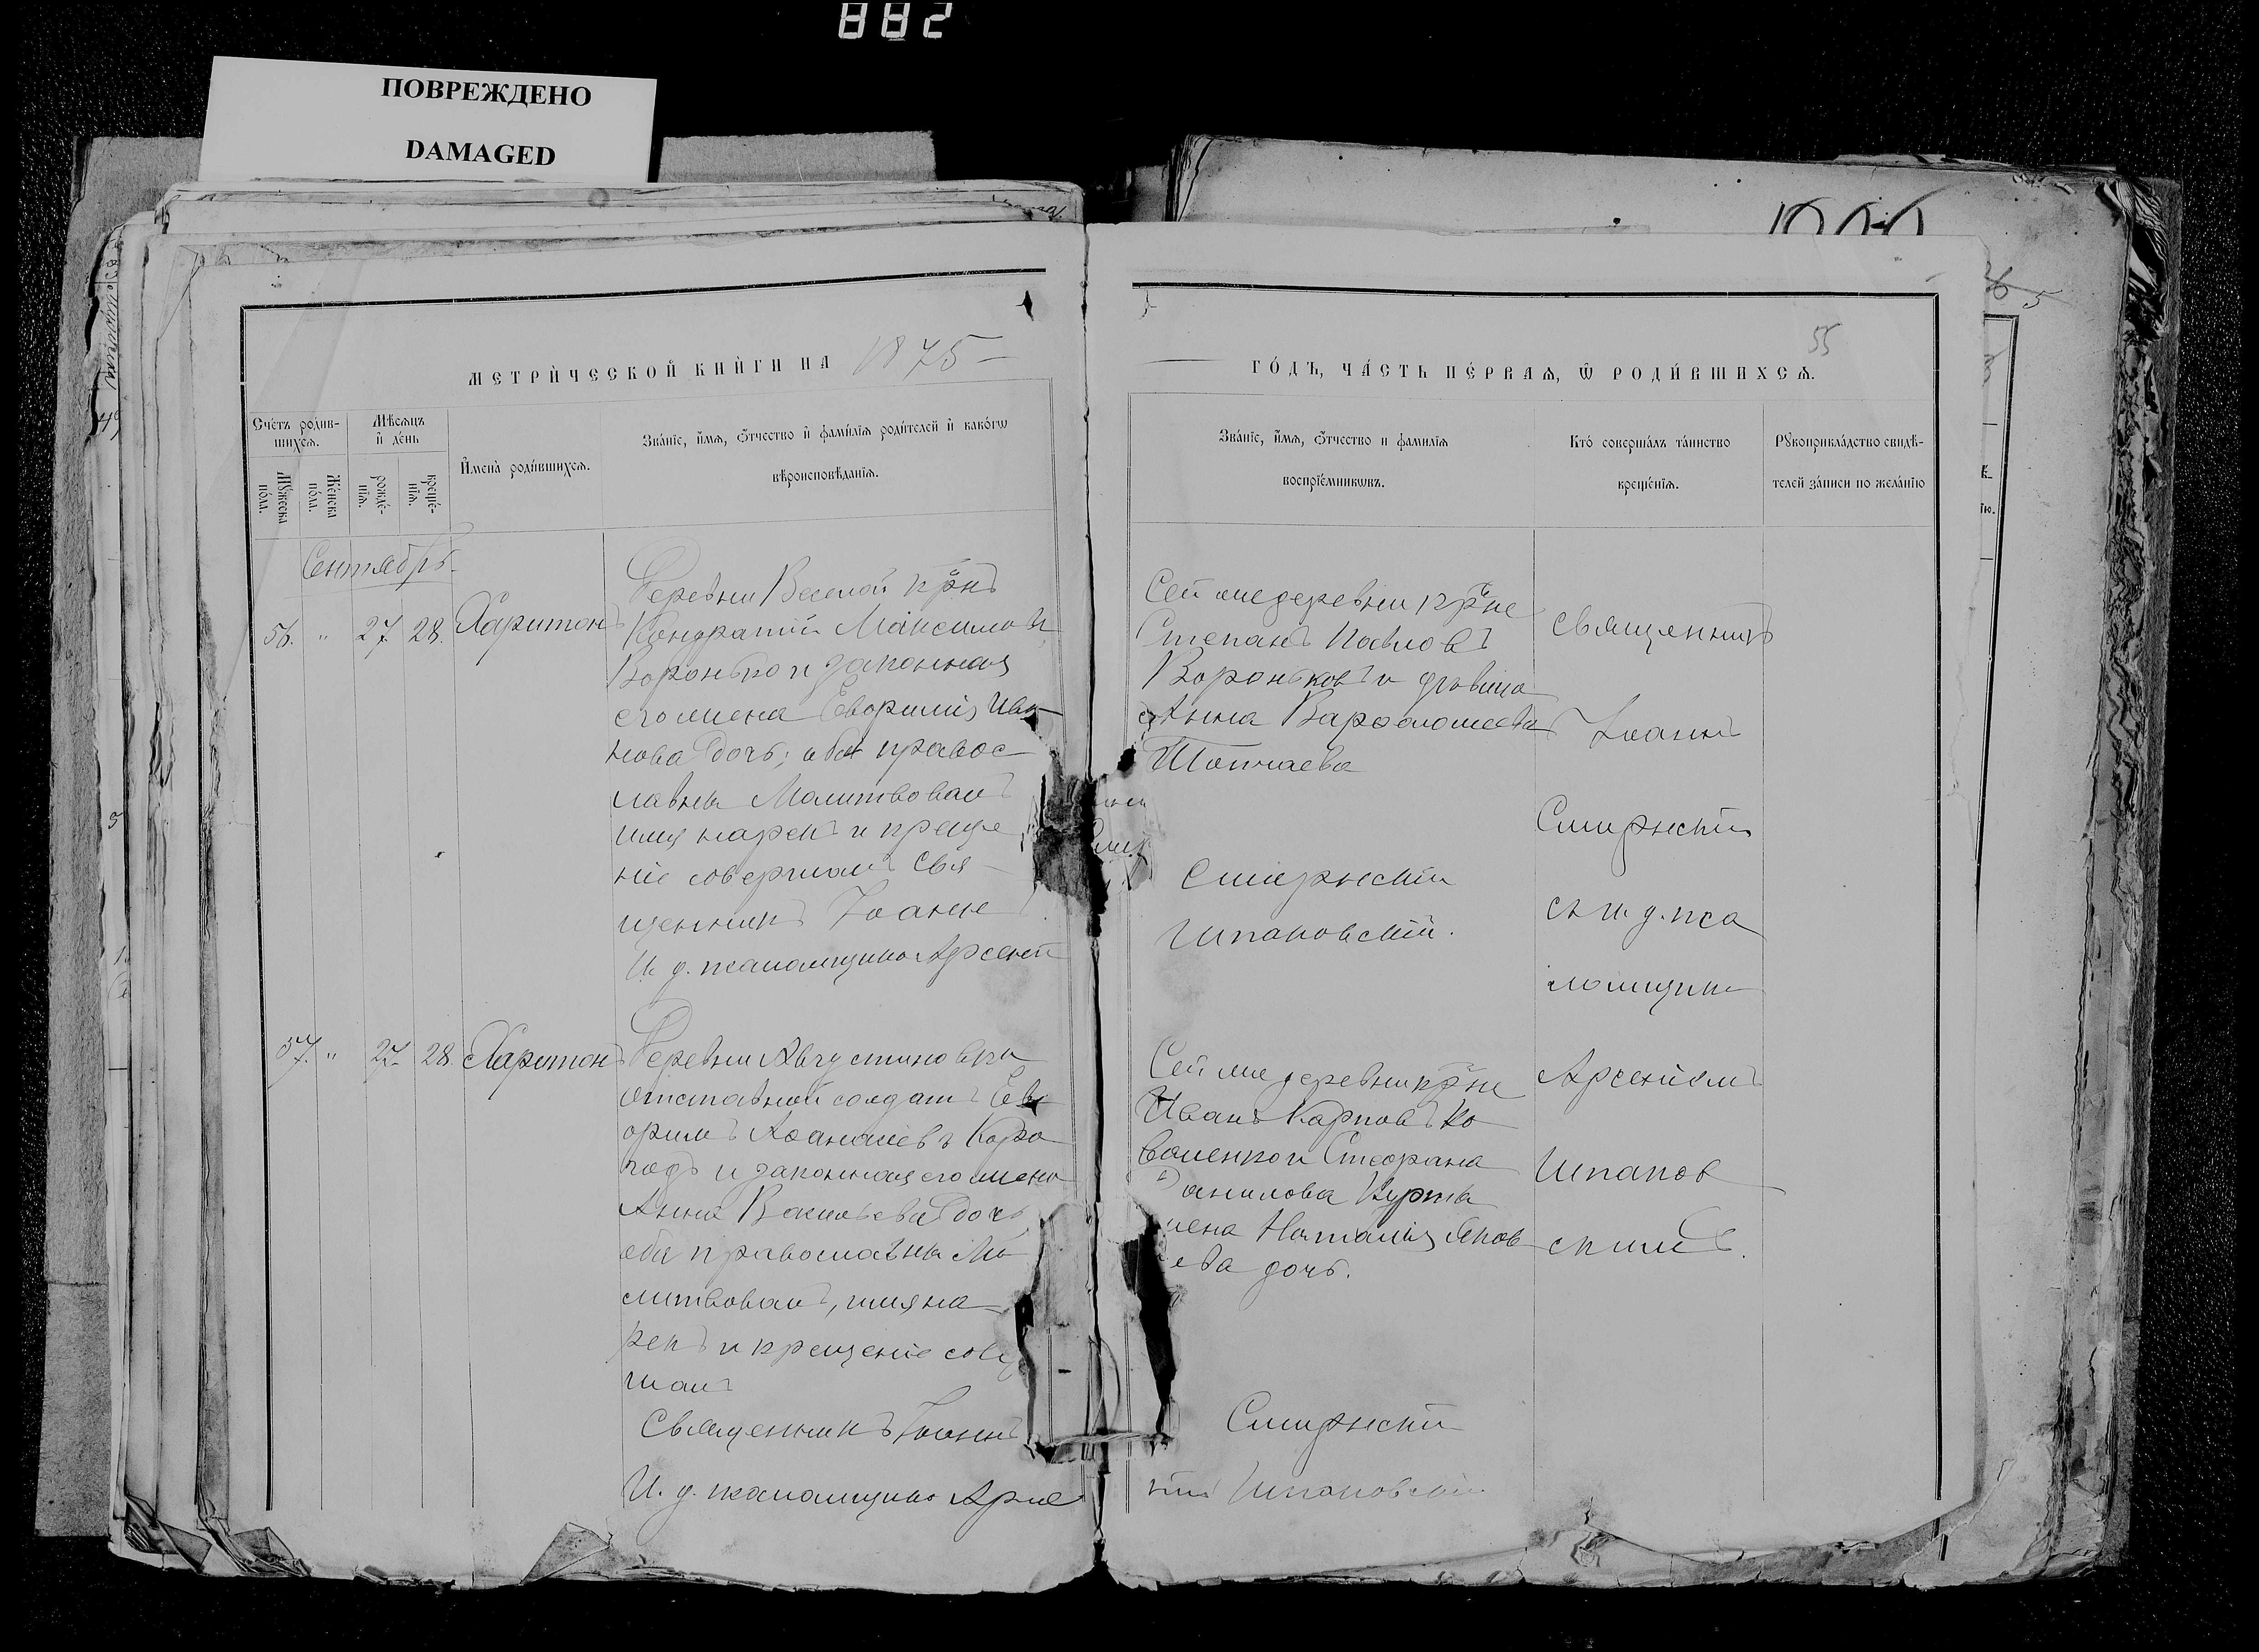 882
ПОВРЕЖДЕНО
DAMAGED
5
55
МЕТРИ́ЧЕСКОЙ КНИ́ГИ НА 1875
ГО́ДЪ, ЧА́СТЬ ПЕ́РВАѦ, Ѿ РОДИ́ВШИХСѦ.
Сче́тъ роди́в-
шихсѧ.
Мꙋжеска по́ла.
Же́нска по́ла.
Мѣ́сѧцъ
и де́нь
рожде́-
нїѧ.
креще́-
нїѧ.
И҆мена̀ роди́вшихсѧ.
Зва́нїе, и҆́мѧ, ѻ҆́тчество и҆ фами́лїѧ роди́телей и҆ како́гѡ
вѣроисповѣ́данїѧ.
Зва́нїе, и҆́мѧ, ѻ҆́тчество и фами́лїѧ
воспрїе́мникѡвъ.
Кто̀ соверша́лъ та́инство
креще́нїѧ.
Рꙋкоприкла́дство свидѣ́-
телей за́писи по жела́нїю
Сентябрь
56. " 27 28. Харитонъ
Деревни Веселой крнъ
Кондратій Максимовъ
Воронько и законная
его жена Евфимія Ива-
нова дочь; оба правос
лавны Молитвовалъ
имя нарекъ и креще
ніе совершалъ Свя-
щенникъ Іоаннъ
И. д. псаломщика Арсеній
Сей же деревни крне
Степанъ Павловъ
Вороньковъ и девица
Анна Варфоломеева
Смирнскій
Шпаковскій.
Священникъ
Іоаннъ
Смирнскій
съ и. д. пса
ломщика
Арсеніемъ
Шпаков
скимъ.
57. " 27 28. Харитонъ
Деревни Августиновки
отставной солдатъ Ев
фимъ Афанасіевъ
и законная его жена
Анна Васильева дочь,
оба православны Мо
литвовалъ, имя на-
рекъ и крещеніе совер
шалъ
Священникъ Іоаннъ
И. д. псаломщика Арсе
Сей же деревни крне
Иванъ Карповъ Ко
валенко и Стефана
Данилова
жена Наталія Яков
лева дочь.
Смирнскій
ній Шпаковскій